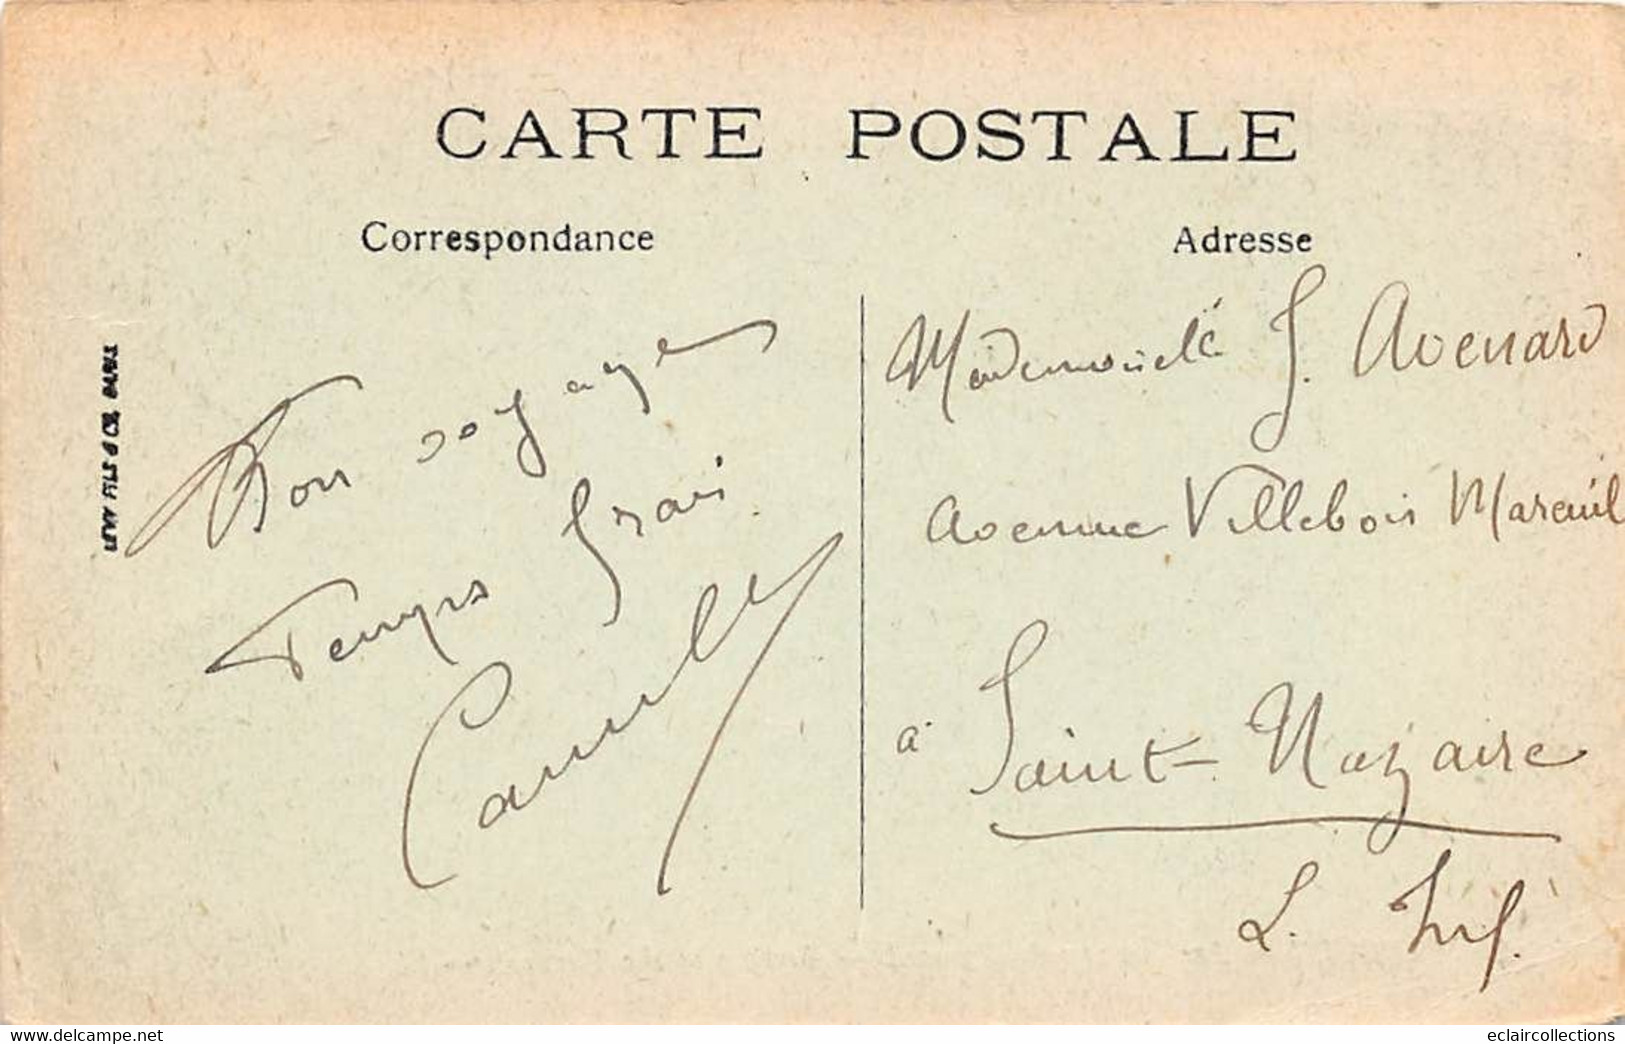 CARTE POSTALE
Correspondance
Bon voyage
Temps frais
Camille
LEVY FILS & CIE, PARIS
Adresse
Mademoiselle J. Avenard
Avenue Villebois Mareuil
à Saint-Nazaire
L. Inf.
www.delcampe.net
eclaircollections